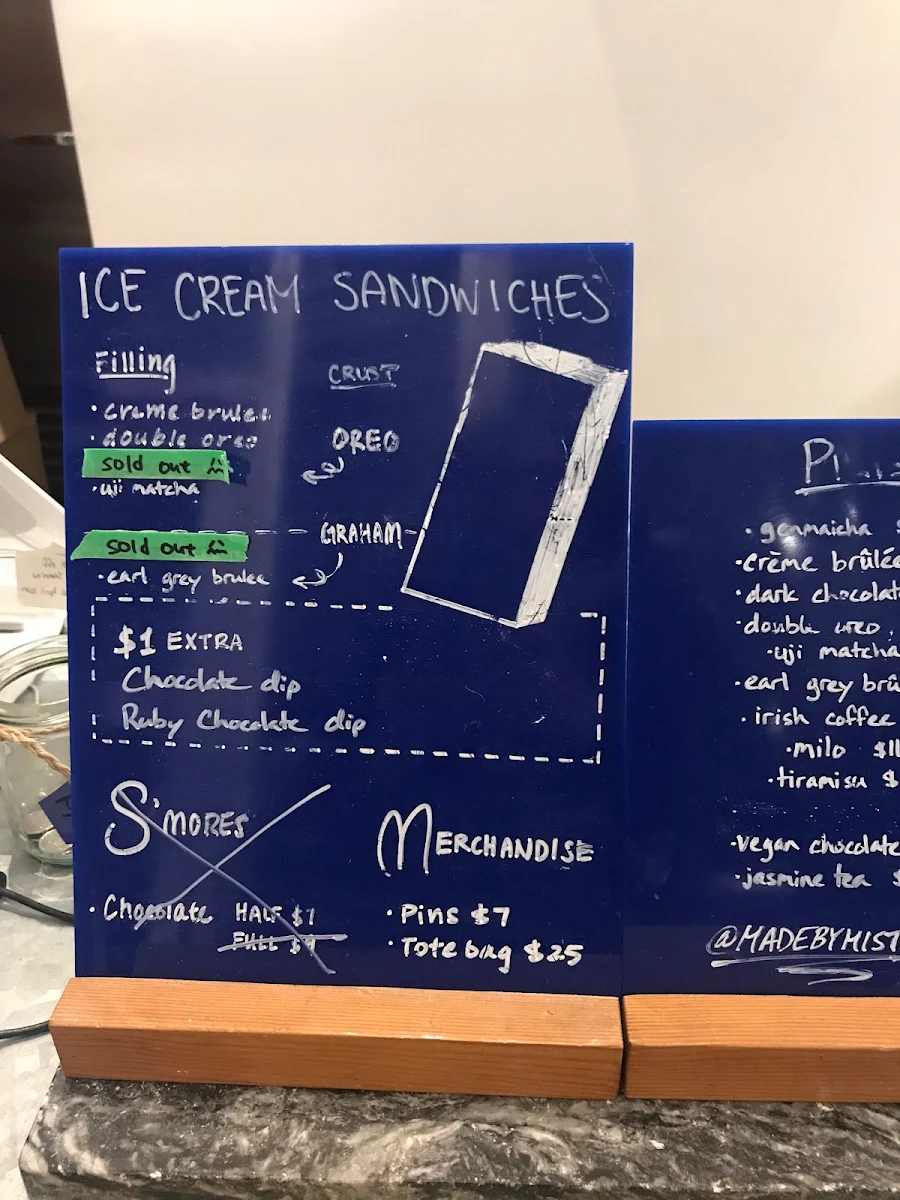 ICE CREAM SANDWICHES
Filling
CRUST
• creme brulee
• double oreo
OREO
sold out
• uji matcha
GRAHAM
sold out
• earl grey brulee
$1 EXTRA
Chocolate dip
Ruby Chocolate dip
S'MORES
• Chocolate HALF $7
FULL $9
MERCHANDISE
• Pins $7
• Tote bag $25
• genmaicha
• crème brûlée
• dark chocolat
• double oreo
• uji matcha
• earl grey brû
• irish coffee
• milo
• tiramisu $
• vegan chocolate
• jasmine tea
@MADEBYMIST